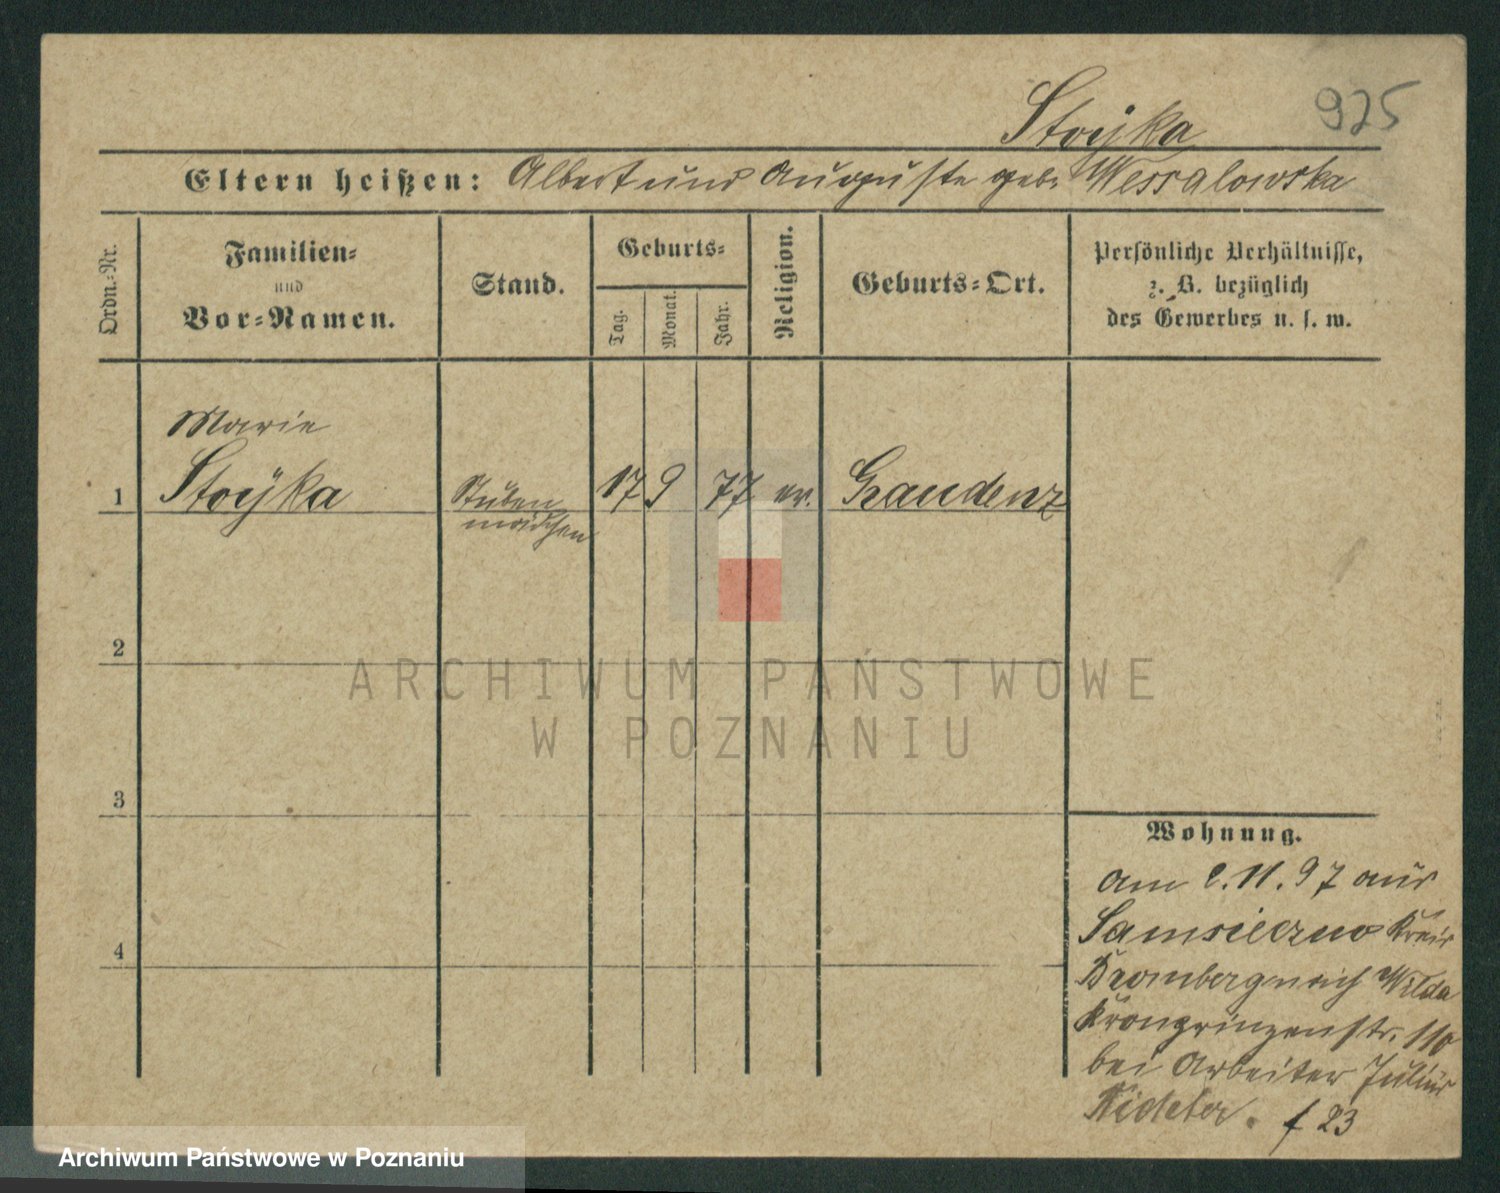 Stoÿka 925
Eltern heißen: Albert und Auguste geb. Wessalowska
Ordn.-Nr.
Familien-
und
Vor-Namen.
Stand.
Geburts-
Tag.
Monat.
Jahr.
Religion.
Geburts-Ort.
Persönliche Verhältnisse,
z. B. bezüglich
des Gewerbes u. s. w.
Marie
1 Stoÿka Stuben 17 9 77 ev. Graudenz
mädchen
2
3
4
Wohnung.
am 2.11.97 aus
Samsieczno Kreis
Bromberg nach Wilda
Kronprinzenstr. 110
bei Arbeiter Julius
f 23
ARCHIWUM PAŃSTWOWE
W POZNANIU
Archiwum Państwowe w Poznaniu